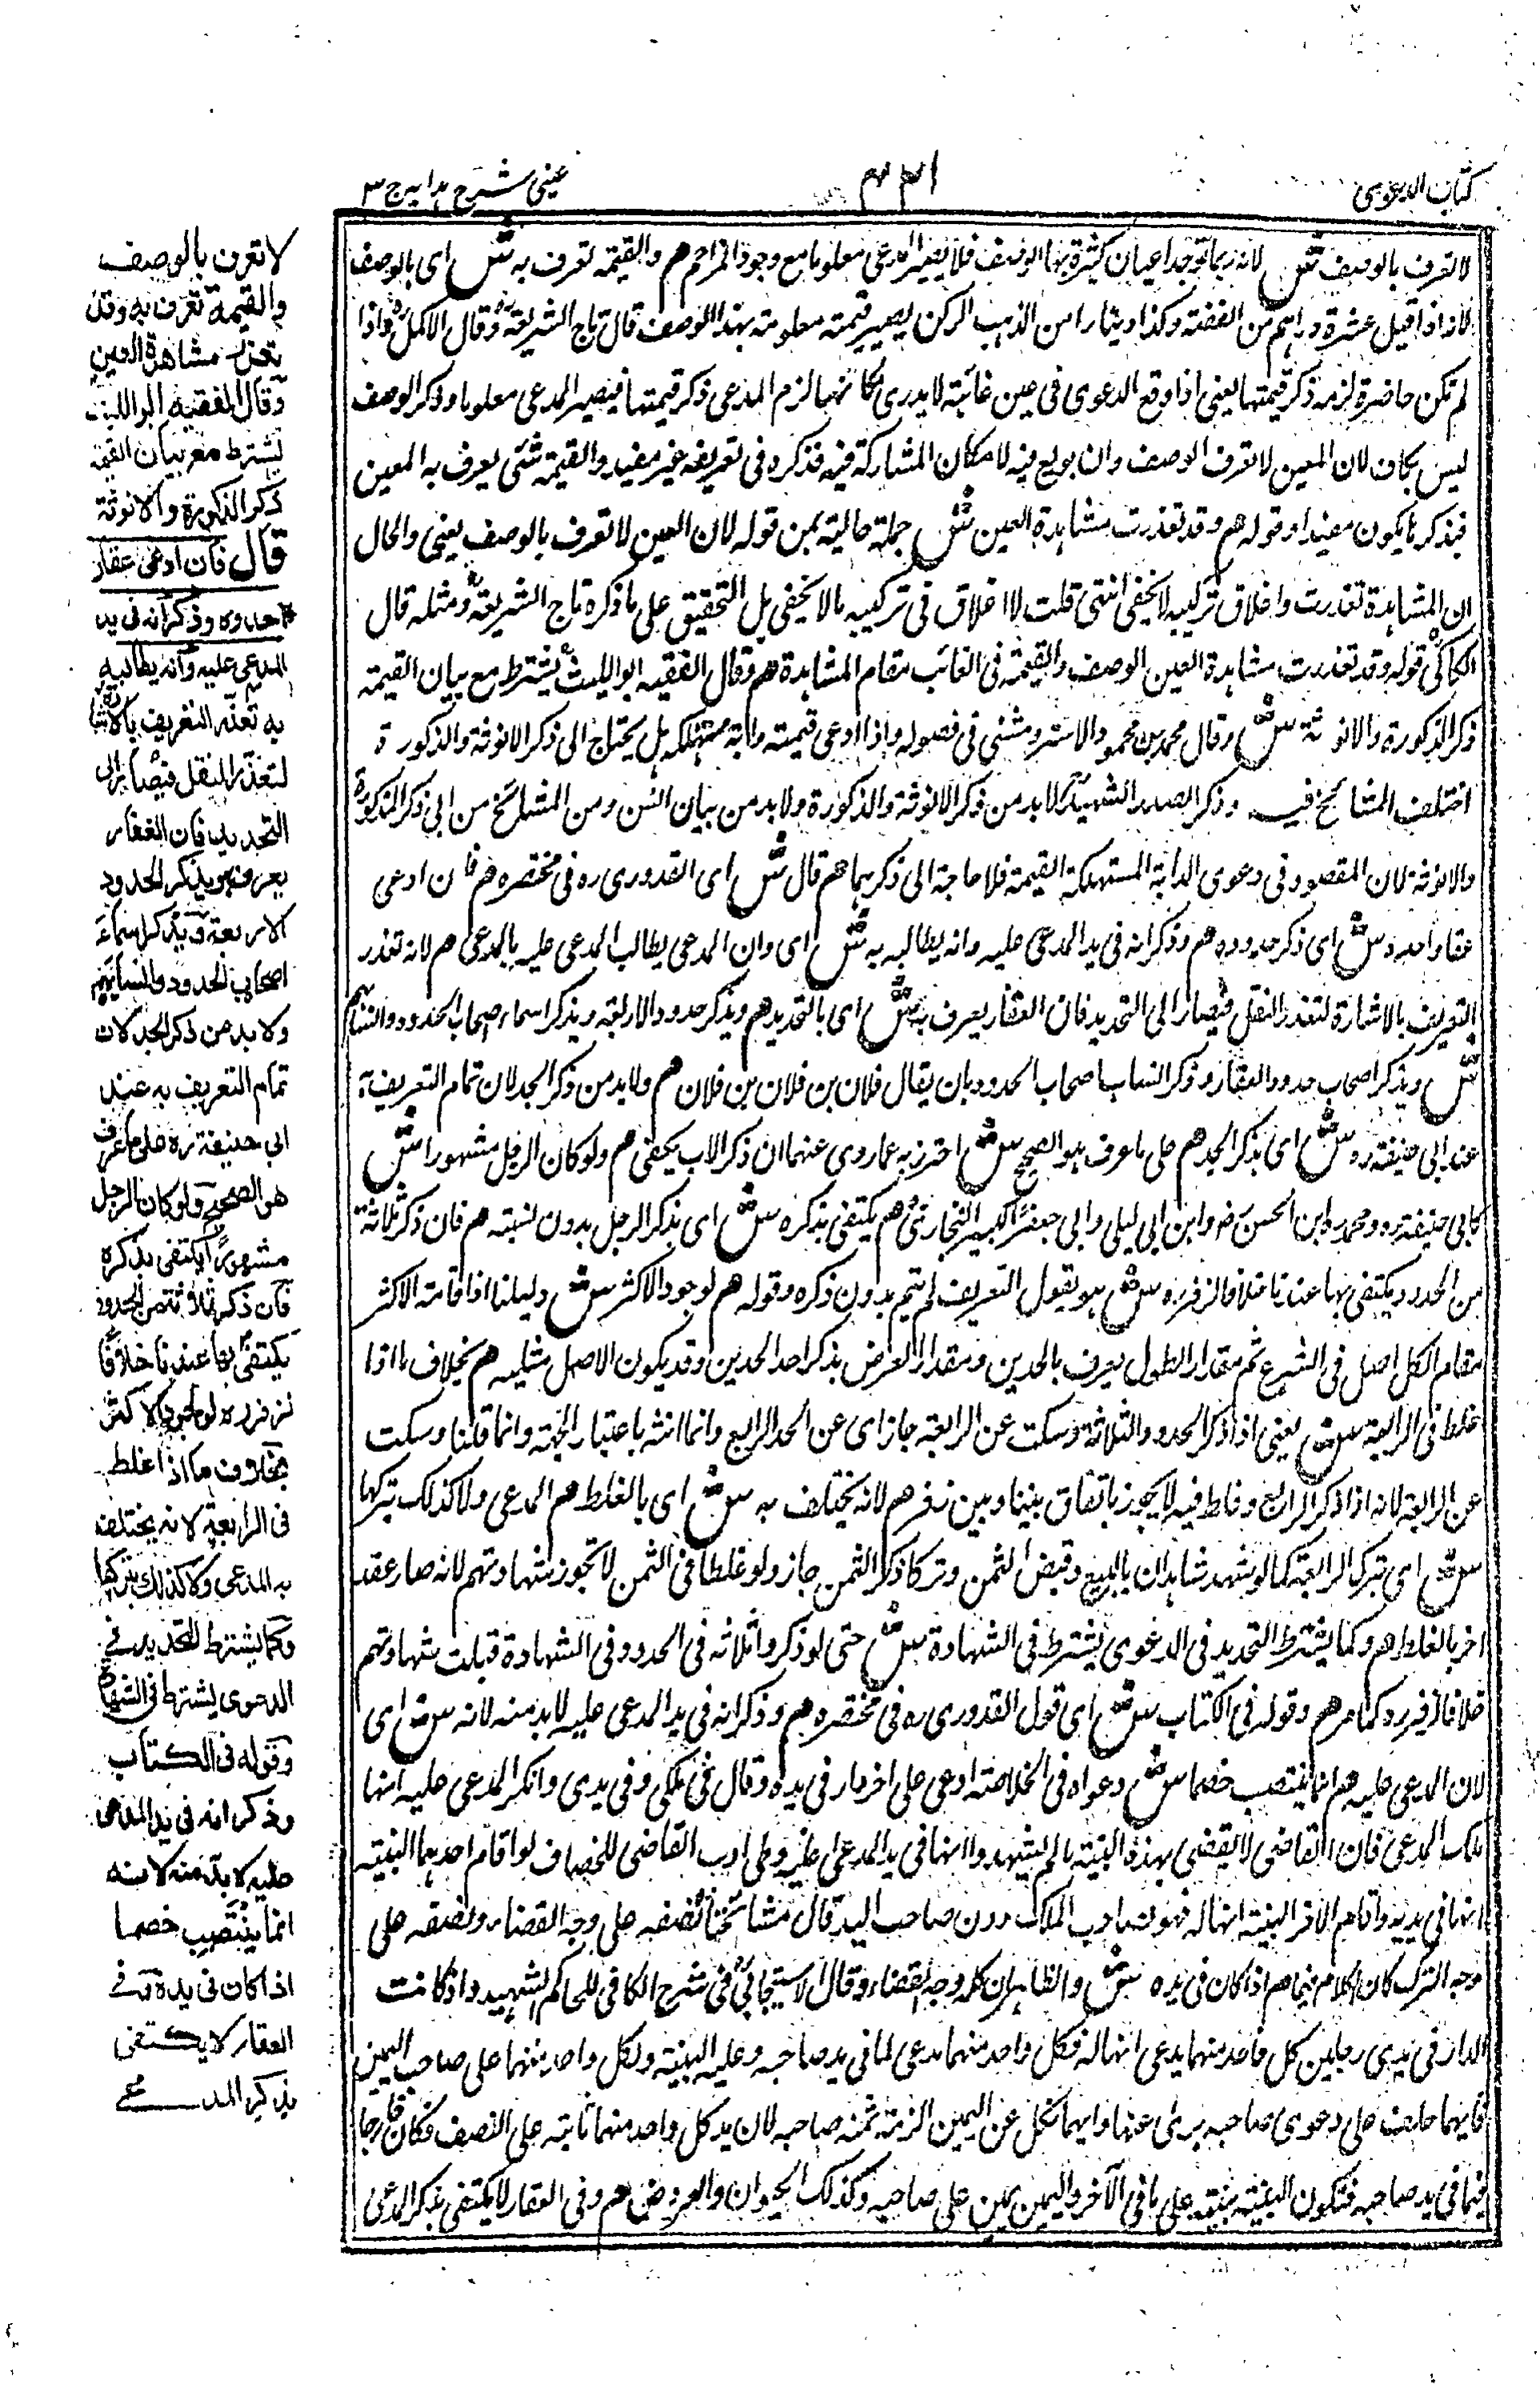 كتاب الدعوى
۴۳۱
عينى شرح هدايه ج ۳
لا تعرف بالوصف ش لانه ربما توجد اعيان كثيرة بهذا الوصف فلا يصير المدعى معلوما مع وجود التزاحم هم والقيمة تعرف به ش اى بالوصف
لانه اذا قيل عشرة دراهم من الفضة وكذا دينارا من الذهب الركن يصير قيمته معلومة بهذا الوصف قال تاج الشريعة وقال الاكمل واذا
لم تكن حاضرة لزمه ذكر قيمتها يعنى اذا وقع الدعوى فى عين غائبة لا يدرى مكانها لزم المدعى ذكر قيمتها فيصير المدعى معلوما وذكر الوصف
ليس بكاف لان المعين لا تعرف الوصف وان بولغ فيه لامكان المشاركة فيه فذكره فى تعريفه غير مفيد والقيمة شئى يعرف به المعين
فبذكرها يكون مفيدا وقوله هم وقد تعذرت مشاهدة العين ش جملة حالية من قوله لان العين لا تعرف بالوصف يعنى والحال
ان المشاهدة تعذرت واغلاق تركيبه لا يخفى انتهى قلت لا اغلاق فى تركيبه مالا يخفى بل التحقيق على ما ذكره تاج الشريعة ومثله قال
الكاكى قوله وقد تعذرت مشاهدة العين الوصف والقيمة فى الغائب مقام المشاهدة هم وقال الفقيه ابو الليث يشترط مع بيان القيمة
ذكر الذكورة والانوثة ش وقال محمد بن محمود الاستروشنى فى فصوله واذا ادعى قيمته دابة مستهلكه هل يحتاج الى ذكر الانوثة والذكورة
اختلف المشائخ فيه وذكر الصدر الشهيد لا بد من ذكر الانوثة والذكورة ولا بد من بيان السن ومن المشائخ من ابى ذكر الذكورة
والانوثة لان المقصود فى دعوى الدابة المستهلكة القيمة فلا حاجة الى ذكرهما هم قال ش اى القدورى ره فى مختصره هم فان ادعى
عقارا حدده ش اى ذكر حدوده هم وذكر انه فى يد المدعى عليه وانه يطالبه به ش اى وان المدعى يطالب المدعى عليه بالمدعى هم لانه تعذر
التعريف بالاشارة لتعذر النقل فيصار الى التحديد فان العقار يعرف به ش اى بالتحديد هم ويذكر حدود الاربعة ويذكر اسماء اصحاب الحدود وانسابهم
ش ويذكر اصحاب حدود العقار وذكر انساب اصحاب الحدود بان يقال فلان بن فلان بن فلان هم ولا بد من ذكر الجد لان تمام التعريف به
عند ابى حنيفة ره ش اى بذكر الجد هم على ما عرف هو الصحيح ش احترز به عما روى عنهما ان ذكر الاب يكفى هم ولو كان الرجل مشهورا ش
كابى حنيفة ره ومحمد ره ابن الحسن وابن ابى ليلى وابى جعفر الكبير البخارى هم يكتفى بذكره ش اى بذكر الرجل بدون نسبته هم فان ذكر ثلاثة
من الحدود يكتفى بها عندنا خلافا لزفر ره ش هو يقول التعريف لم يتم بدون ذكره وقوله هم لوجود الاكثر ش دليلنا اذا قامة الاكثر
مقام الكل اصل فى الشرع ثم مقدار الطول يعرف بالحدين ومقدار العرض بذكر احد الحدين وقد يكون الاصل مثليه هم بخلاف ما اذا
غلط فى الرابعة ش يعنى اذا ذكر الحدود الثلاثة وسكت عن الرابعة جاز اى عن الحد الرابع وانما انثه باعتبار الجهة وانما قلنا وسكت
عن الرابعة لانه اذا ذكر الرابع وغلط فيه لا يجوز باتفاق بيننا وبين زفر هم لانه يختلف به ش اى بالغلط هم المدعى ولا كذلك بتركها
ش اى بترك الرابعة كما لو شهد شاهدان بالبيع وقبض الثمن وتركا ذكر الثمن جاز ولو غلطا فى الثمن لا تجوز شهادتهم لانه صار عقد
اخر بالغلط هم وكما يشترط التحديد فى الدعوى يشترط فى الشهادة ش حتى لو ذكروا ثلاثه فى الحدود فى الشهادة قبلت شهادتهم
خلافا لزفر ره كما مر هم وقوله فى الكتاب ش اى قول القدورى ره فى مختصره هم وذكر انه فى يد المدعى عليه لا بد منه لانه ش اى
لان المدعى عليه هم انما ينتصب خصما ش دعواه فى الخلاصة ادعى على اخر دار فى يده وقال هى ملكى وفى يدى وانكر المدعى عليه انها
ملك المدعى فان القاضى لا يقضى بهذه البينة ما لم يشهدوا انها فى يد المدعى عليه وفى ادب القاضى للخصاف لو اقام احدهما البينة
انها فى يديه واقام الاخر البينة انها له فهو لصاحب الملك دون صاحب اليد قال مشائخنا نصفه على وجه القضاء ونصفه على
وجه الترك كان الكلام فيما هم اذا كان فى يده ش والظاهر ان كله وجه القضاء وقال الاسبيجابى فى شرح الكافى للحاكم الشهيد واذا كانت
الدار فى يدى رجلين كل واحد منهما يدعى انها له فكل واحد منهما مدعى لما فى يد صاحبه وعليه البينة ولكل واحد منهما على صاحب اليمين
فايهما حلف على دعوى صاحبه برى عنها وايهما نكل عن اليمين الزمته ثمنه صاحبه لان يد كل واحد منهما ثابتة على النصف فكان خارجا
فيما فى يد صاحبه فتكون البينة بينته على ما فى الآخر واليمين يمين على صاحبه وكذلك الحيوان والعروض هم وفى العقار لا يكتفى بذكر المدعى
لا تعرف بالوصف
والقيمة تعرف به وقد
تعذر مشاهدة العين
وقال الفقيه ابو الليث
يشترط مع بيان القيمة
ذكر الذكورة والانوثة
قال فان ادعى عقارا
حدده وذكر انه فى يد
المدعى عليه وانه يطالبه
به تعذر التعريف بالاشارة
لتعذر النقل فيصار الى
التحديد فان العقار
يعرف به ويذكر الحدود
الاربعة ويذكر اسماء
اصحاب الحدود وانسابهم
ولا بد من ذكر الجد لان
تمام التعريف به عند
ابى حنيفة ره على ما عرف
هو الصحيح ولو كان الرجل
مشهورا يكتفى بذكره
فان ذكر ثلاثة من الحدود
يكتفى بها عندنا خلافا
لزفر ره لوجود الاكثر
بخلاف ما اذا غلط
فى الرابعة لانه يختلف
به المدعى ولا كذلك بتركها
وكما يشترط التحديد فى
الدعوى يشترط فى الشهادة
وقوله فى الكتاب
وذكر انه فى يد المدعى
عليه لا بد منه لانه
انما ينتصب خصما
اذا كان فى يده وفى
العقار لا يكتفى
بذكر المدعى